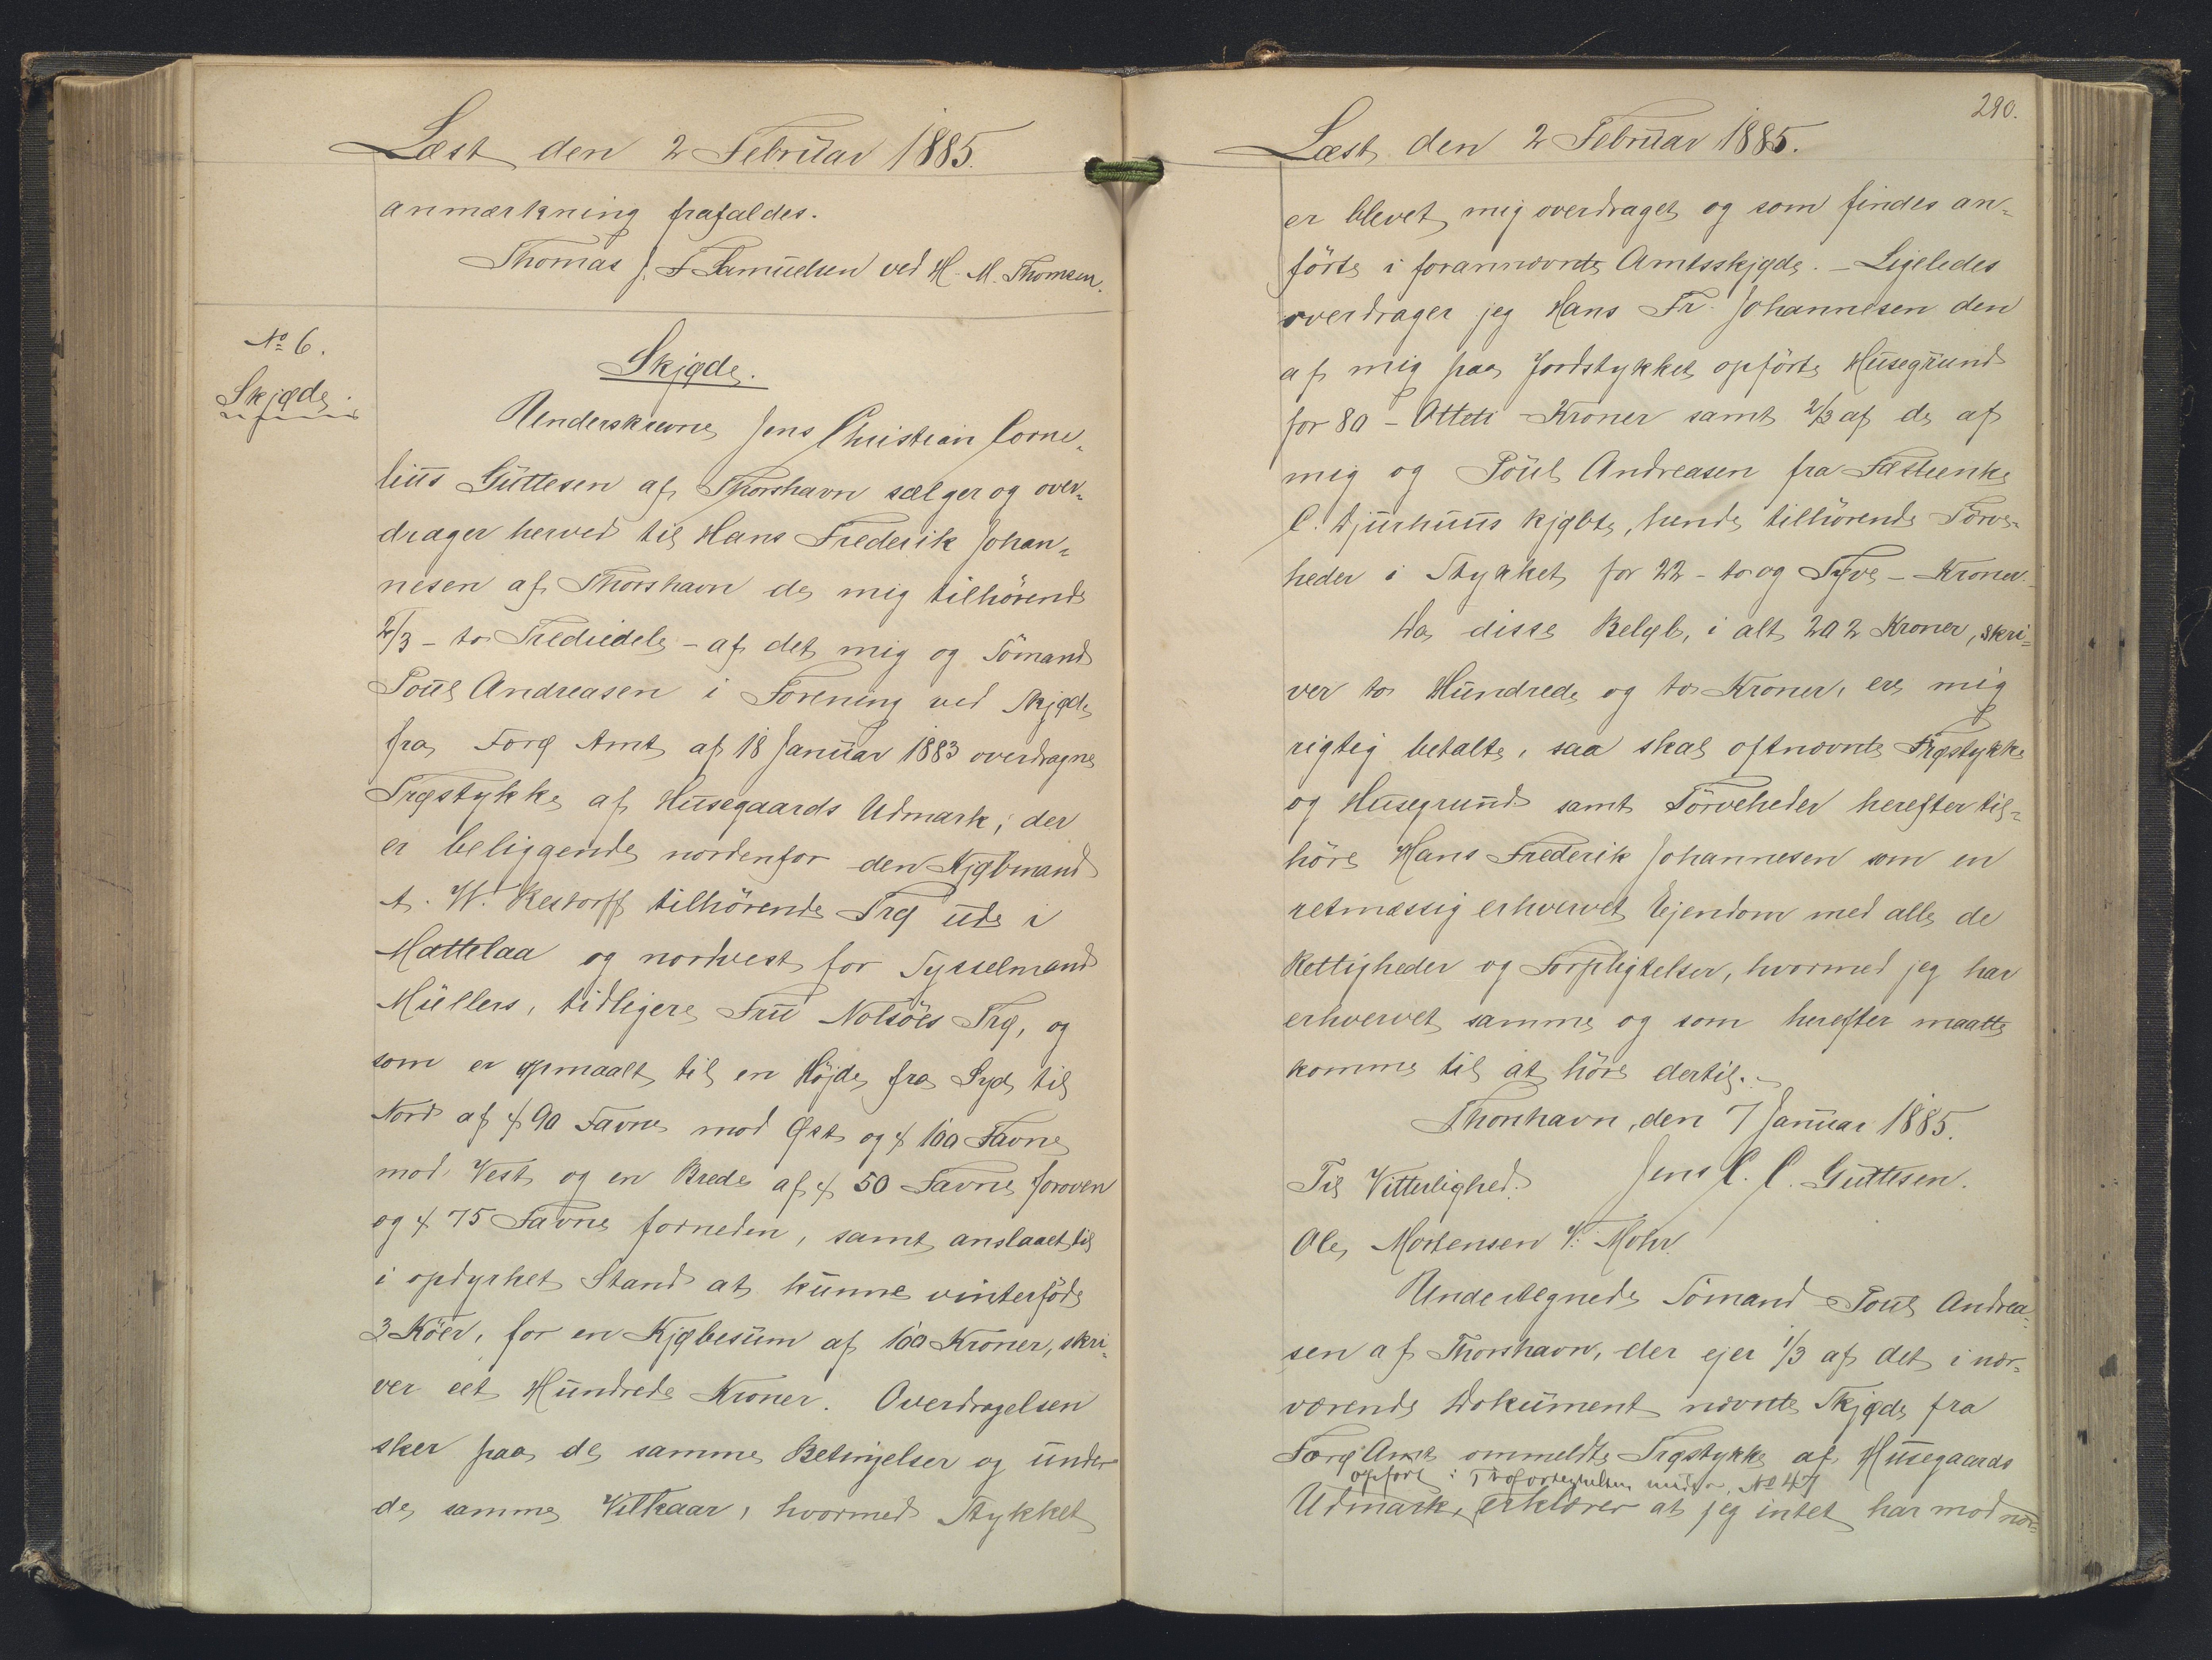 Læst den 2 Februar 1885.
anmærkning frafaldes.
Thomas J. F Samuelsen ved H. M. Thomsen.
No 6.
Skjøde.
Skjøde.
Underskrevne Jens Christian Corne-
lius Guttesen af Thorshavn sælger og over-
drager herved til Hans Frederik Johan-
nesen af Thorshavn de mig tilhörende
2/3 - to Trediedele - af det mig og Sömand
Poul Andreasen i Forening ved Skjøde
fra Færø Amt af 18 Januar 1883 overdragne
Trøstykke af Husegaards Udmark, der
er beliggende nordenfor den Kjøbmand
A. W. Restorff tilhörende Trø ude i
Mattelaa og nordvest for Sysselmand
Müllers, tidligere Fru Nolsöes Trø, og
som er opmaalt til en Højde fra Syd til
Nord af 90 Favne mod Øst og 100 Favne
mod Vest og en Brede af 50 Favne foroven
og 75 Favne forneden, samt anslaaet til
i opdyrket Stand at kunne vinterföde
3 Köer, for en Kjøbesum af 100 Kroner, skri-
ver eet Hundrede Kroner. Overdragelsen
sker paa de samme Betingelser og under
de samme Vilkaar, hvormed Stykket
290.
Læst den 2 Februar 1885.
er blevet mig overdraget og som findes an-
förte i forannævnte Amtsskjøde. - Ligeledes
overdrager jeg Hans Fr. Johannesen den
af mig paa Jordstykket opförte Husegrund
for 80 - Otteti - Kroner samt 2/3 af de af
mig og Poul Andreasen fra Fæsteenke
C. Djurhuus kjøbte, hende tilhörende Törve-
heder i Stykket for 22 - to og Tyve - Kroner.
Da disse Beløb, i alt 202 Kroner, skri-
ver to Hundrede og to Kroner, ere mig
rigtig betalte, saa skal oftnævnte Trøstykke
og Husegrund samt Törveheder herefter til-
höre Hans Frederik Johannesen som en
retmæssig erhvervet Ejendom med alle de
Rettigheder og Forpligtelser, hvormed jeg har
erhvervet samme og som herefter maatte
komme til at höre dertil. -
Thorshavn, den 7 Januar 1885.
Jens C. C. Guttesen.
Til Vitterlighed.
Ole Mortensen V. Mohr.
Undertegnede Sömand Poul Andrea-
sen af Thorshavn, der ejer 1/3 af det i nær-
værende Dokument nævnte Skjøde fra
Færø Amt ommeldte Trøstykke af Husegaards
opfört i Trøfortegnelsen under No 47
Udmark, erklærer at jeg intet har mod nær-